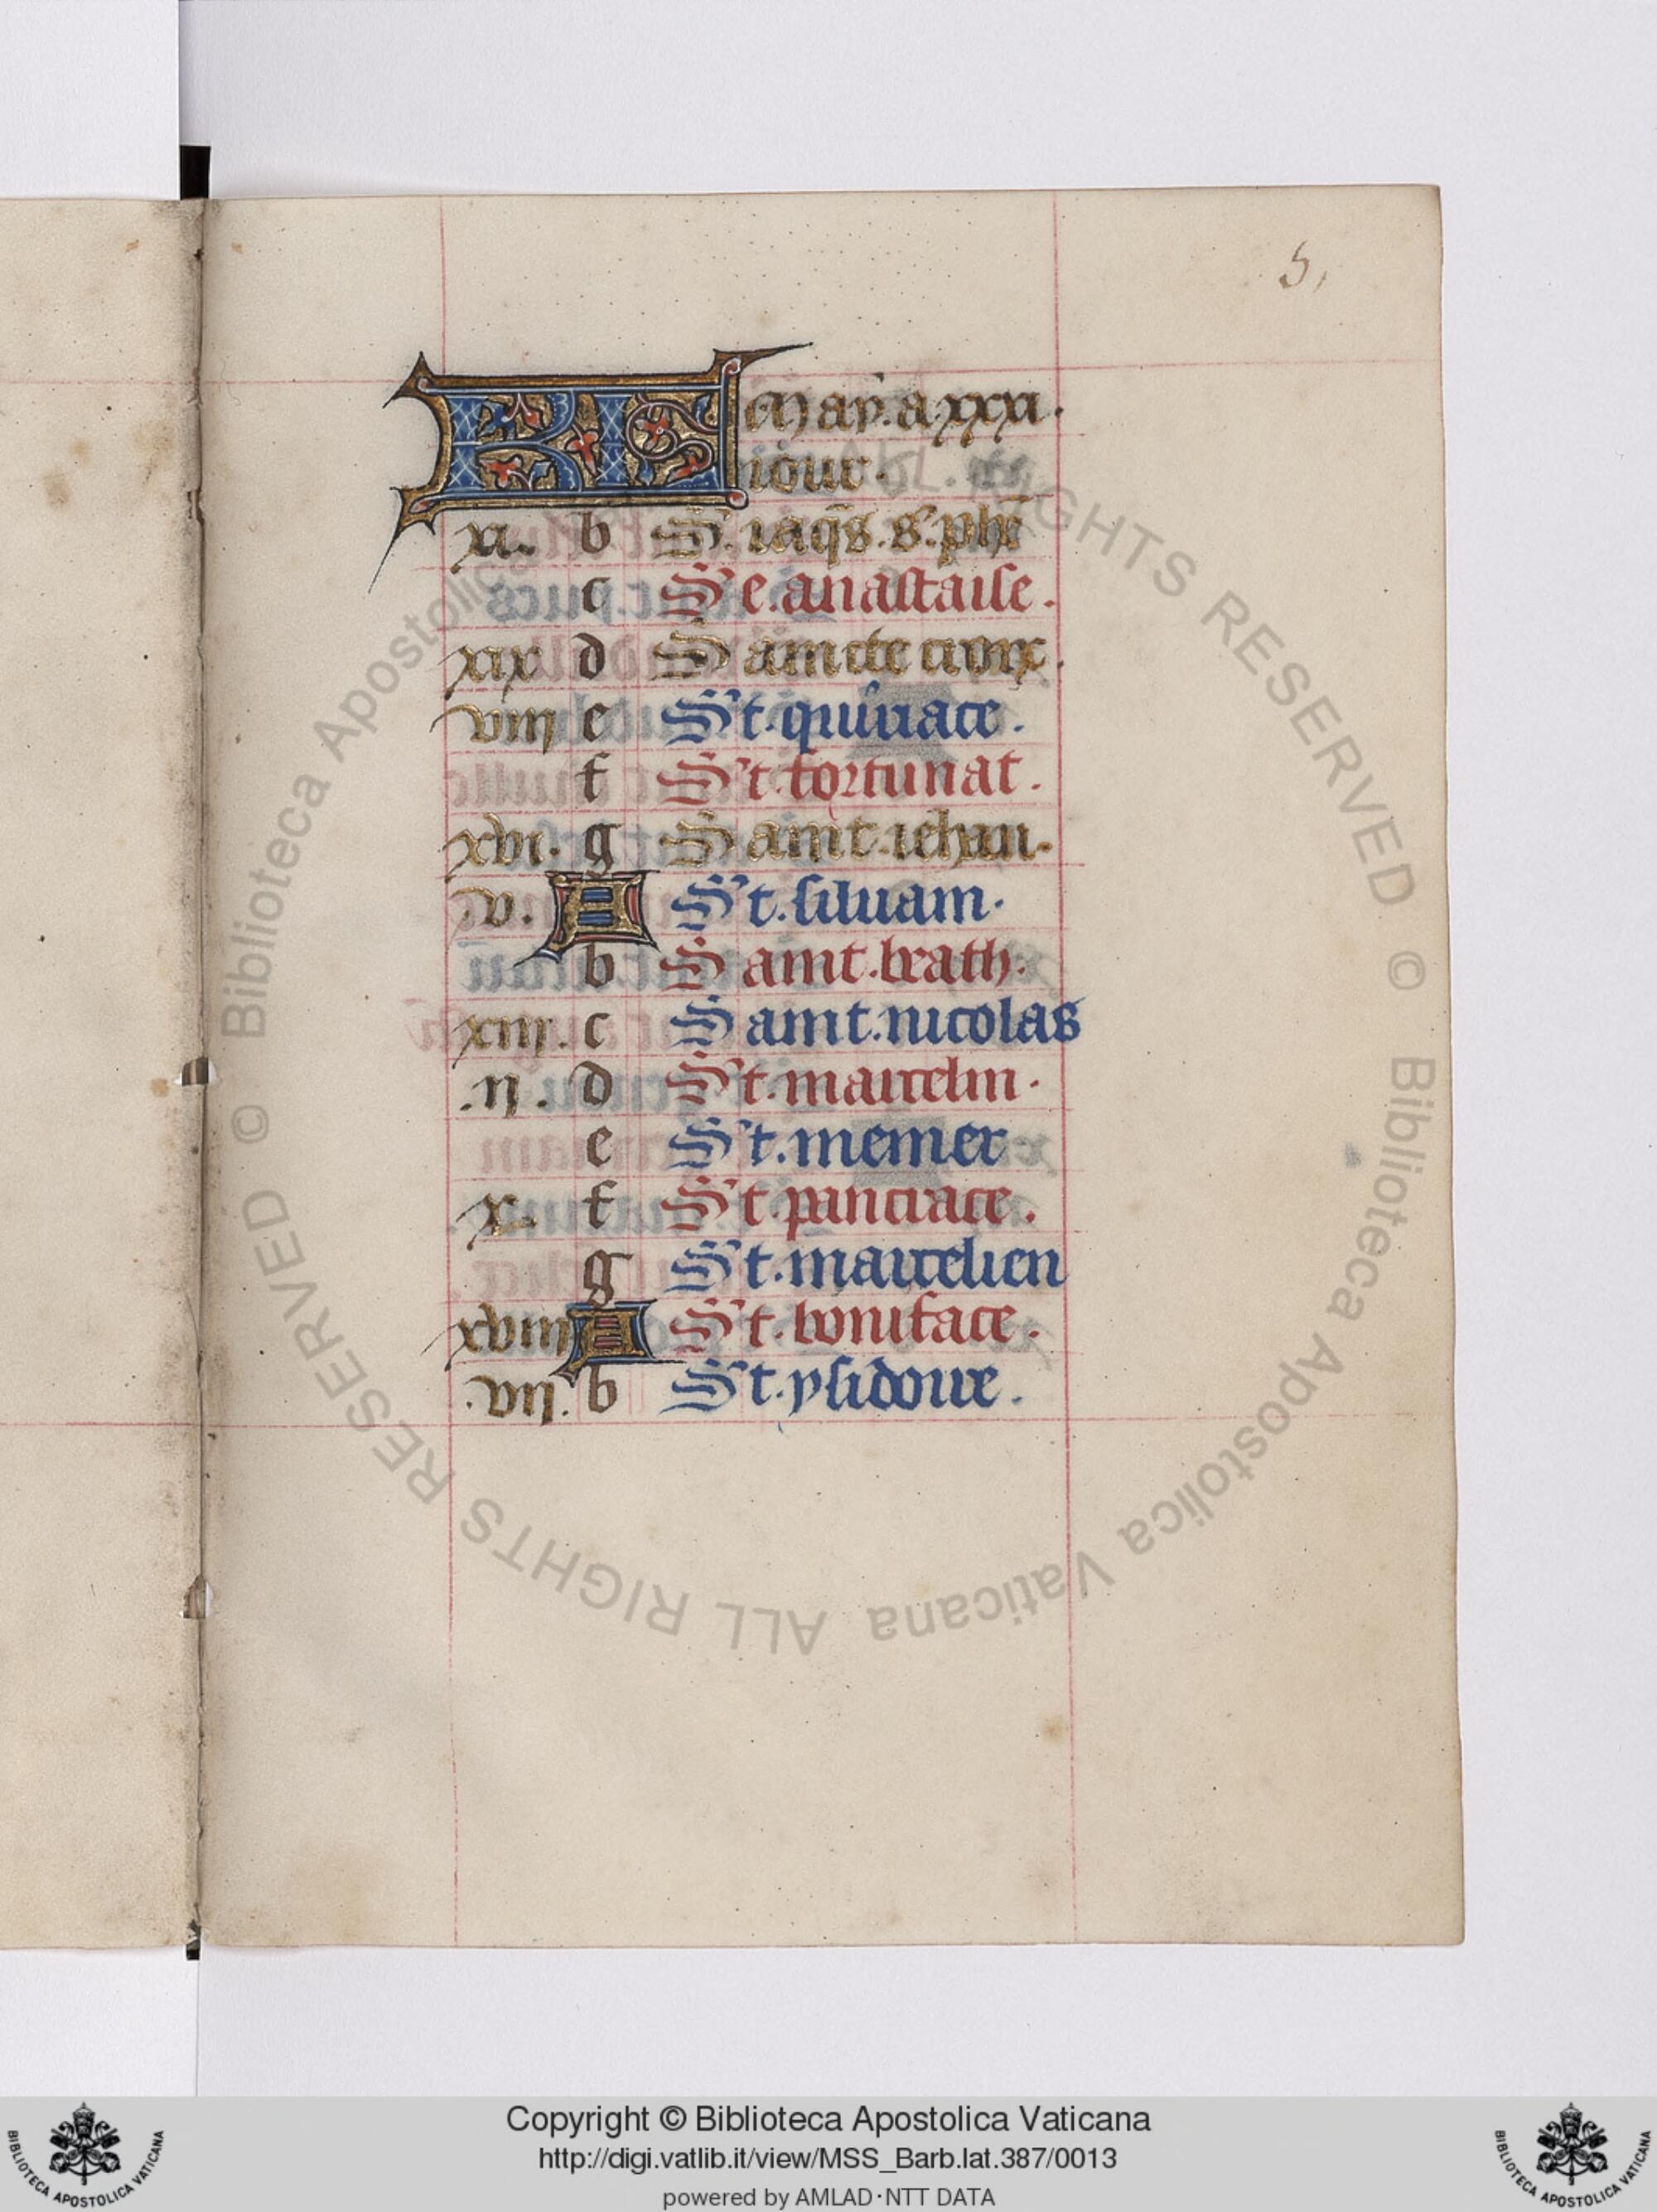 5.
KL May. a xxxi.
iour.
xi. b S. iaq̃s. s. phe
c Se. anastaise.
xix d Saincte croix.
viii e St. quiriace.
f St. fortunat.
xvi. g Saint. iehan.
.v. A St. siluain.
b Saint. beath.
xiii. c Saint. nicolas
.ii. d St. marcelin.
e St. memer
x. f St. pancrace.
g St. marcelien
xviii A St. boniface.
.vii. b St. ysidoire.
© Biblioteca Apostolica Vaticana ALL RIGHTS RESERVED
© Biblioteca Apostolica Vaticana ALL RIGHTS RESERVED
Copyright © Biblioteca Apostolica Vaticana
http://digi.vatlib.it/view/MSS_Barb.lat.387/0013
powered by AMLAD·NTT DATA
BIBLIOTECA APOSTOLICA VATICANA
BIBLIOTECA APOSTOLICA VATICANA